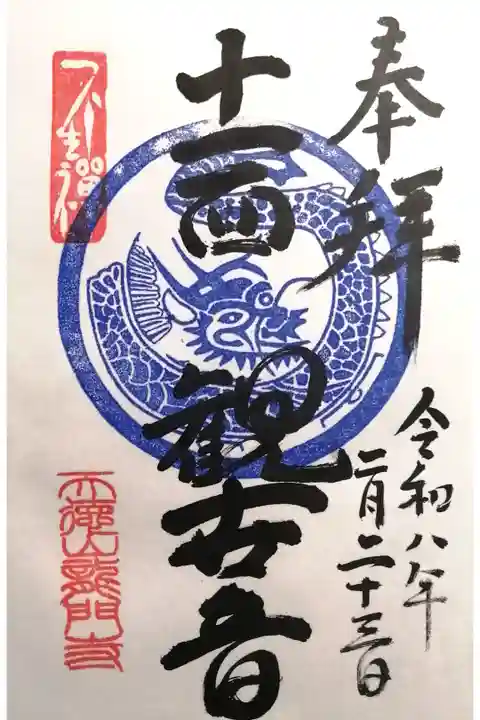 奉拝
令和八年
二月二十三日
十一面観世音
不生禪
天徳山龍門寺